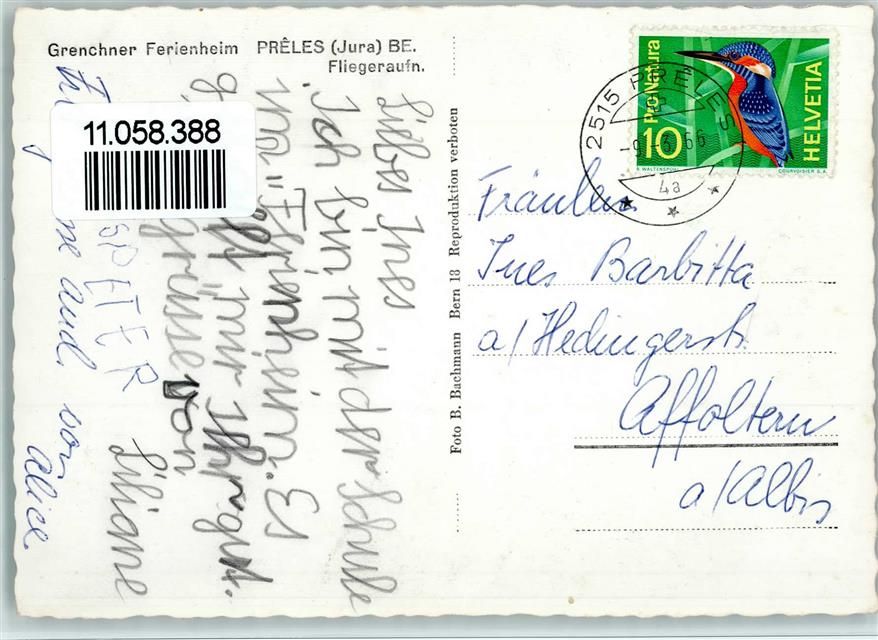 Grenchner Ferienheim PRÊLES (Jura) BE.
Fliegeraufn.
11.058.388
Liebes Ines
Ich bin mit der Schule
im Ferienheim. Es
gefällt mir sehr gut.
grüsse von
Liliane
PETER
und von
Alice.
Foto B. Bachmann Bern 18 Reproduktion verboten
2515 PRÊLES
-9.-3.66
4a
Pro Natura
10
HELVETIA
COURVOISIER S.A.
Fräulein
Ines Barbitta
a/Hedingerstr.
Affoltern
a/Albis